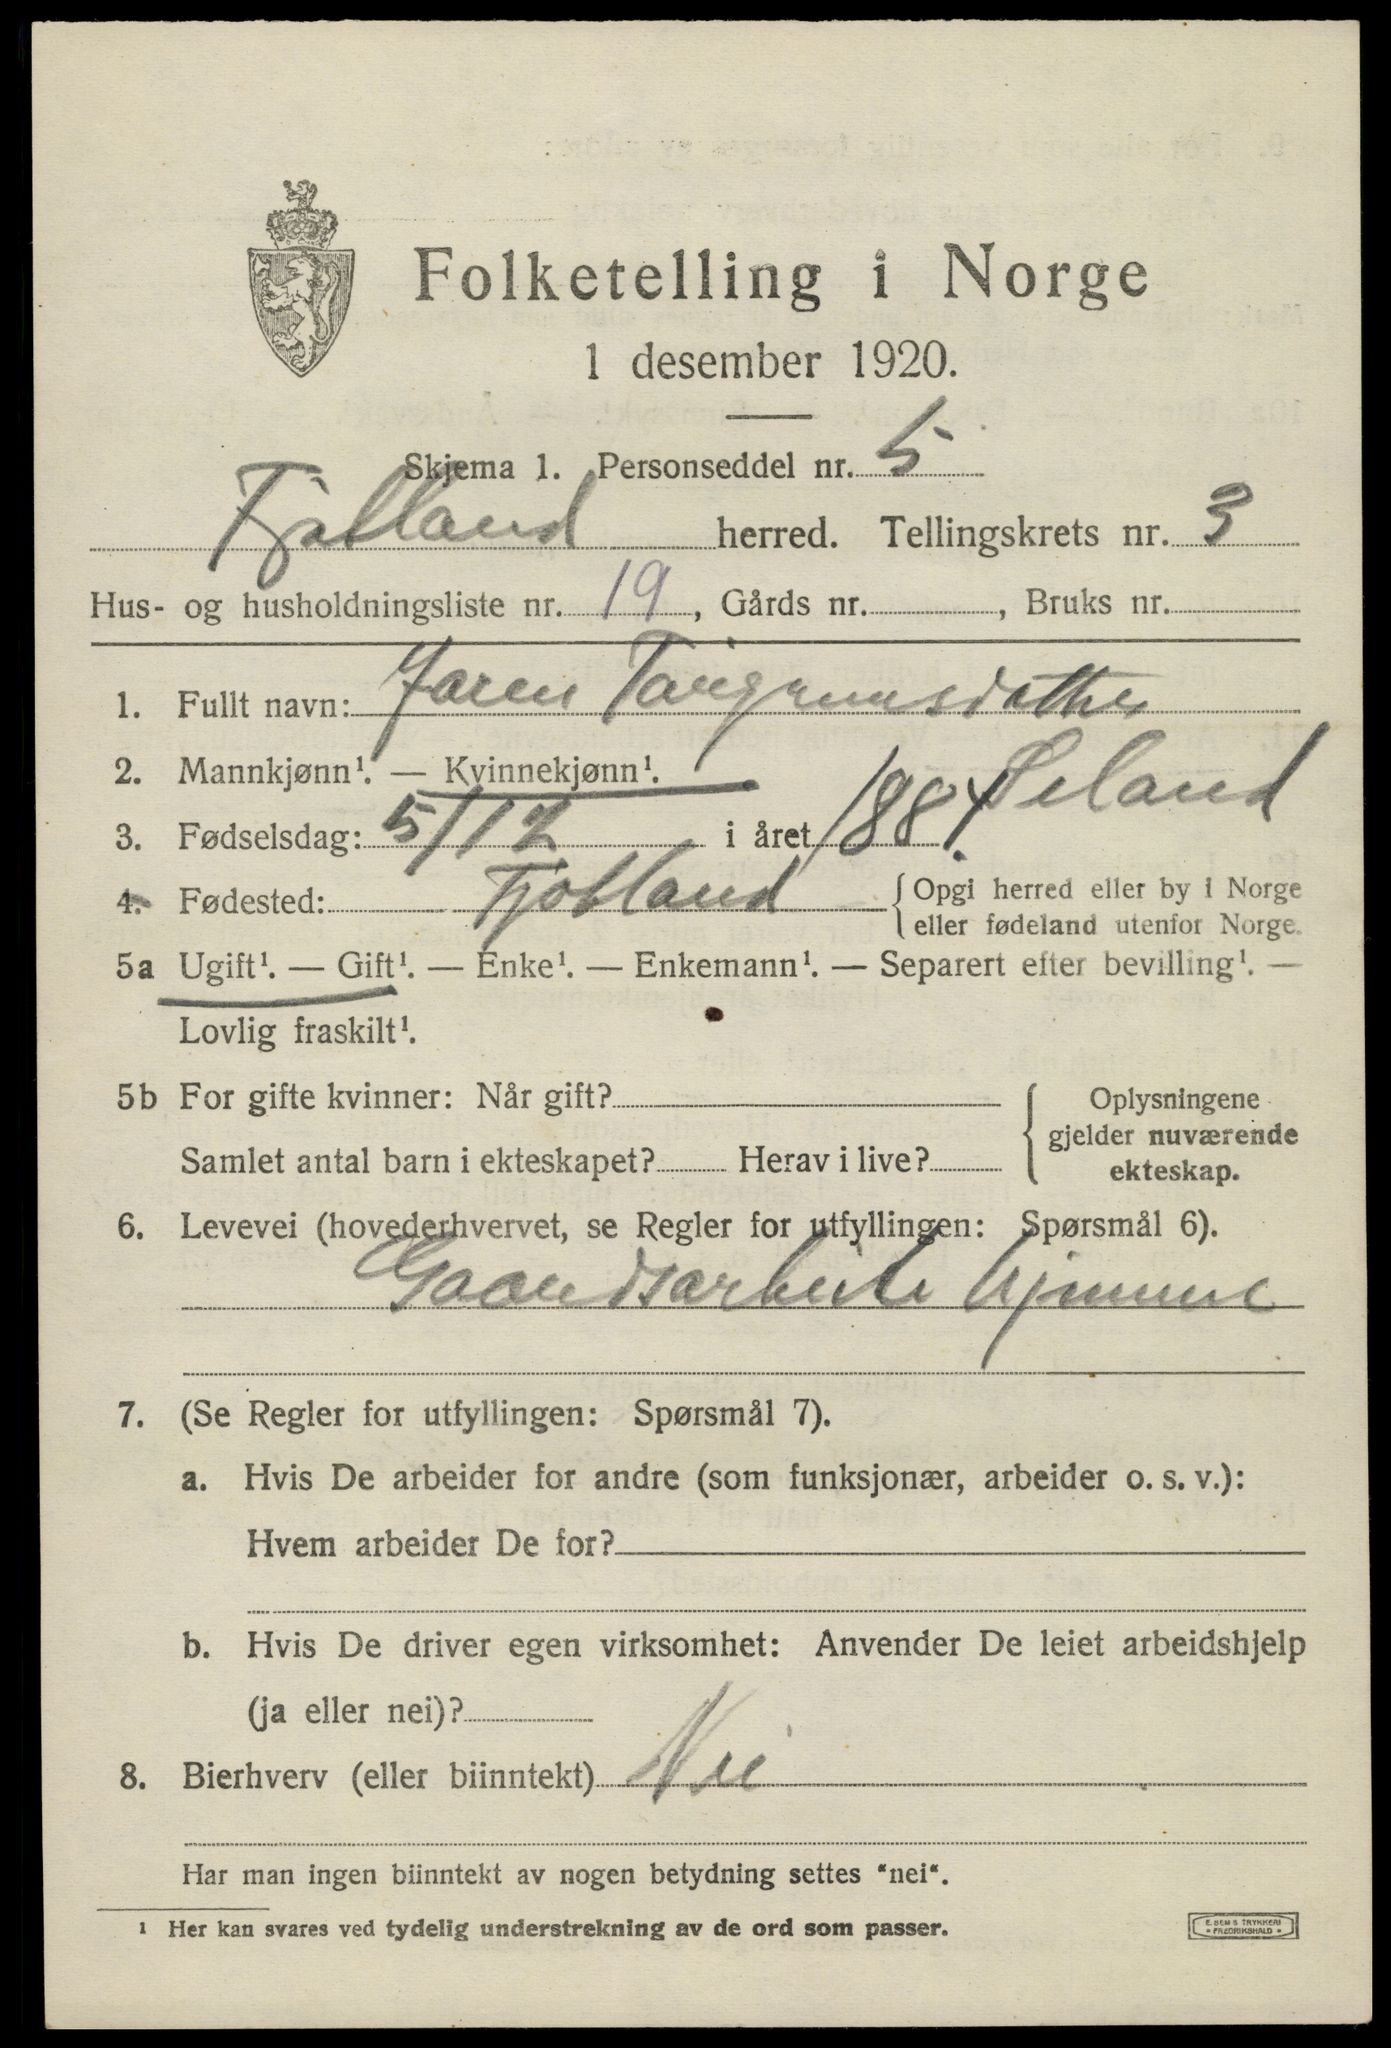 Folketelling i Norge
1 desember 1920.
Skjema 1. Personseddel nr. 5
Fjotland herred. Tellingskrets nr. 3
Hus- og husholdningsliste nr. 19, Gårds nr. , Bruks nr.
1. Fullt navn:
2. Mannkjønn¹. — Kvinnekjønn¹.
3. Fødselsdag: 5/12 i året 1884
4. Fødested: Fjotland { Opgi herred eller by i Norge
eller fødeland utenfor Norge.
5a Ugift¹. — Gift¹. — Enke¹. — Enkemann¹. — Separert efter bevilling¹. —
Lovlig fraskilt¹.
5b For gifte kvinner: Når gift? { Oplysningene
gjelder nuværende
Samlet antal barn i ekteskapet? Herav i live?
ekteskap.
6. Levevei (hovederhvervet, se Regler for utfyllingen: Spørsmål 6).
Gaardsarbeide hjemme
7. (Se Regler for utfyllingen: Spørsmål 7).
a. Hvis De arbeider for andre (som funksjonær, arbeider o. s. v.):
Hvem arbeider De for?
b. Hvis De driver egen virksomhet: Anvender De leiet arbeidshjelp
(ja eller nei)?
8. Bierhverv (eller biinntekt) Nei
Har man ingen biinntekt av nogen betydning settes "nei".
¹ Her kan svares ved tydelig understrekning av de ord som passer.
E. SEM'S TRYKKERI
FREDRIKSHALD